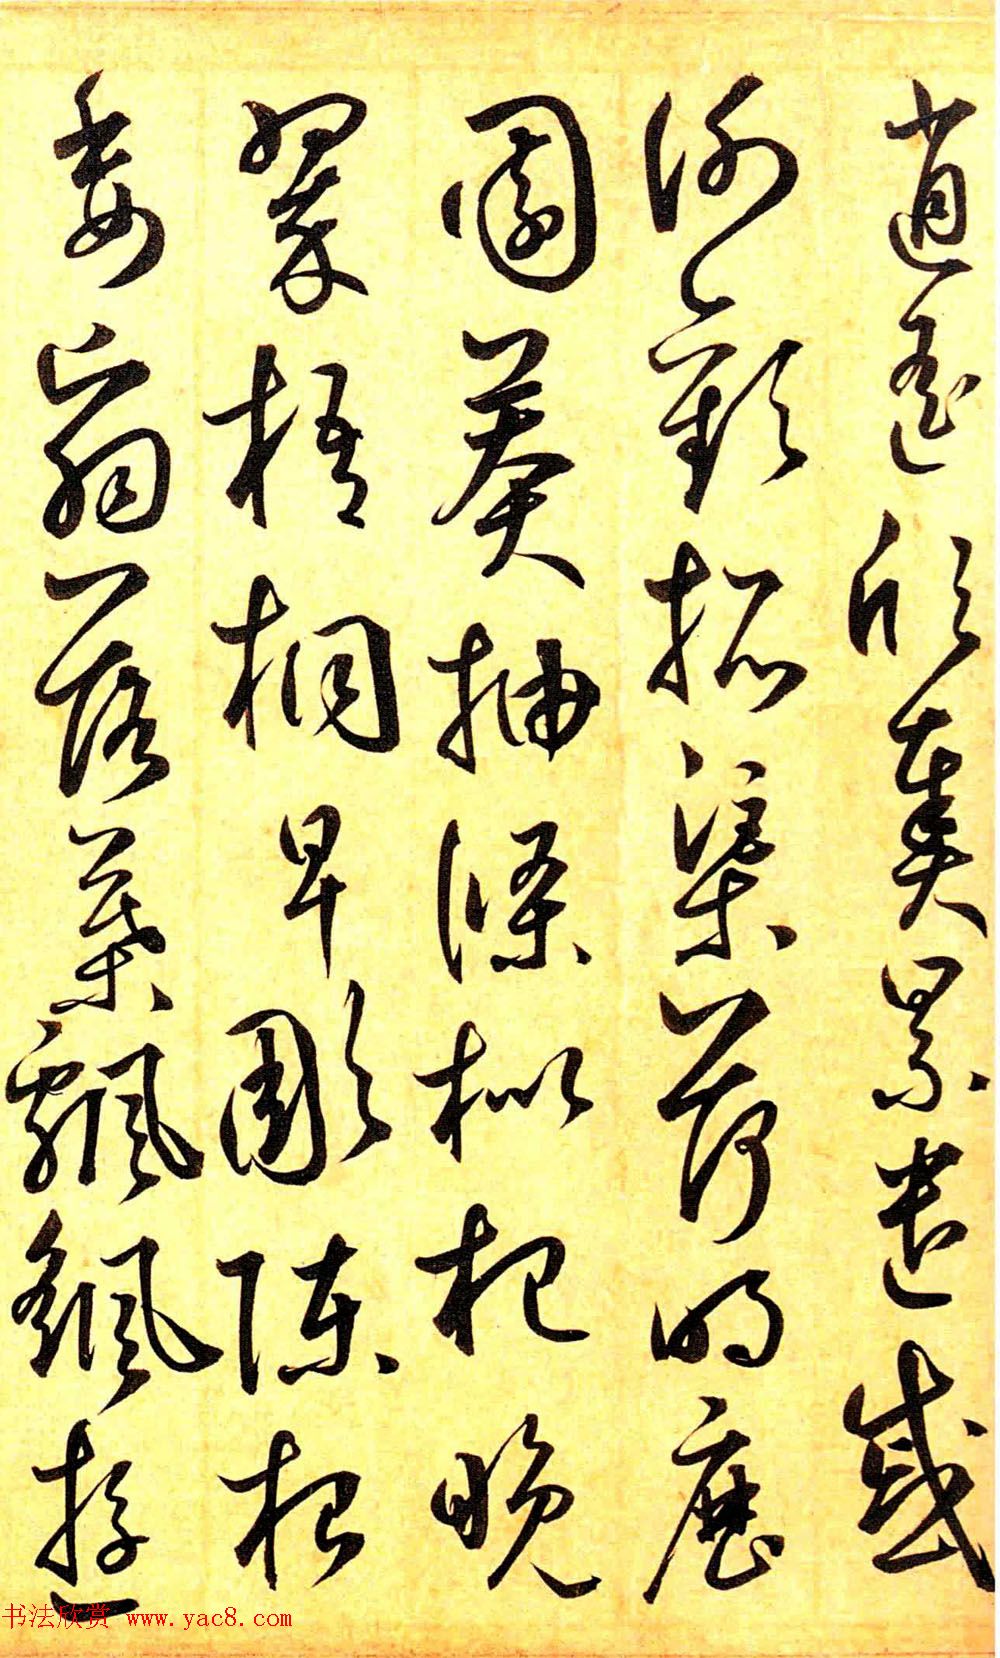 逍遙欣奏累遣慼
謝歡招渠荷的歷
園莽抽條枇杷晚
翠梧桐早彫陳根
委翳落葉飄颻遊
书法欣赏 www.yac8.com